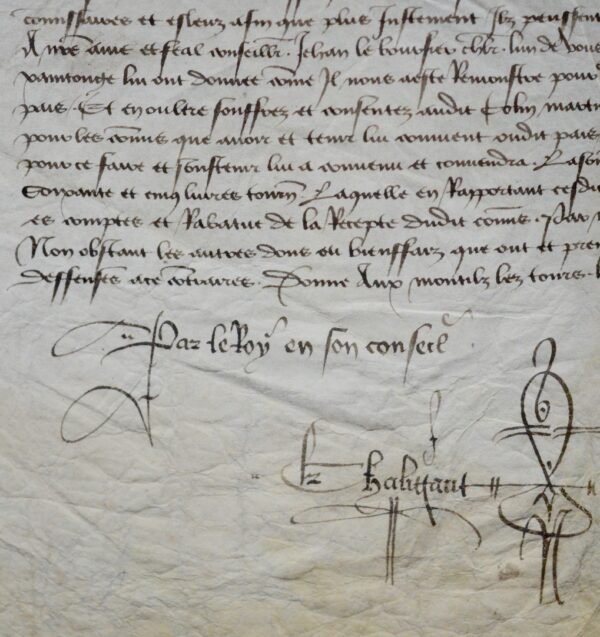 commissaires et esleuz afin que plus Justement Ilz puissent
A nre ame et feal conseillr Jehan le boursier chlr
lui ont donnee come Il nous a este Remonstre pour
pais. Et en oultre souffrez et consentez audit Colin martin
pour les comis que avoir et tenir lui convient oudit pais
pour ce faire et soustenir lui a convenu et conviendra. La
Soixante et cinq livres tourn Laquelle en Rapportant cesdit
es comptes et Rabatue de la Recepte dudit comis. Par
Non obstant les autres dons ou bienffaiz que ont et
deffenses a ce contraires. Donne Aux montilz lez tours.
Par le Roy en son conseil